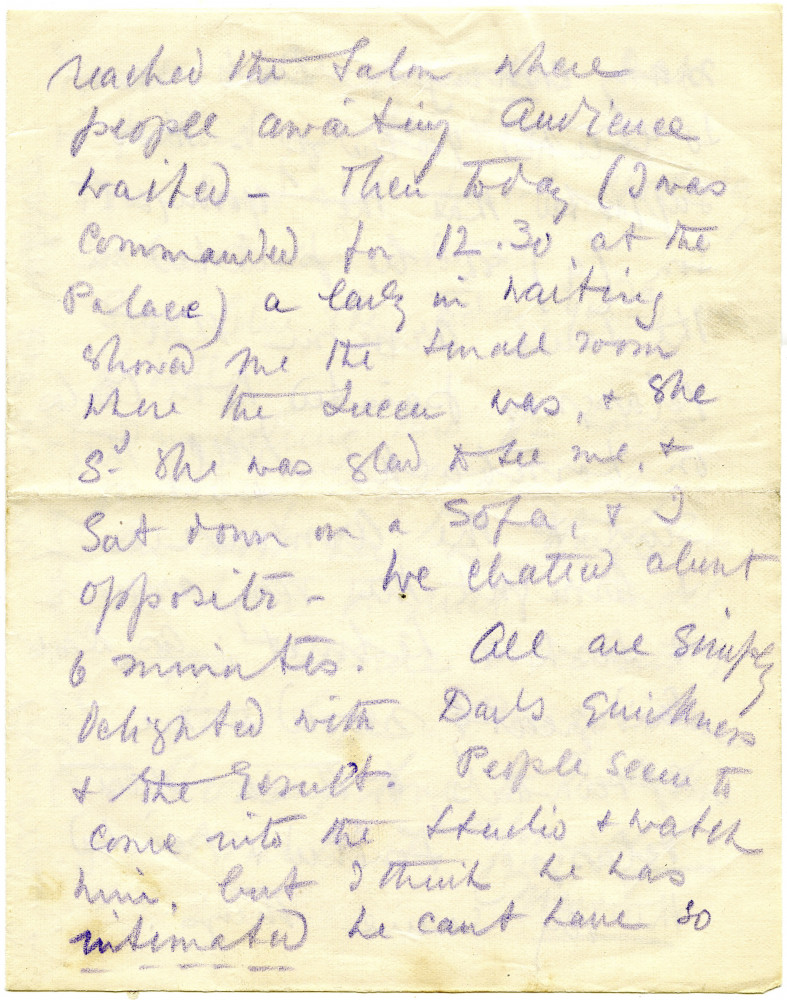 reached the Salon where
people awaiting Audience
waited - Then today (I was
Commanded for 12.30 at the
Palace) a lady in waiting
showed me the small room
where the Queen was, & She
Sd She was glad to see me, &
Sat down on a Sofa, & I
opposite - We chatted about
6 minutes. All are Simply
delighted with Quickness
& the Result. People seem to
come into the Studio & watch
him, but I think he has
intimated he cant have so